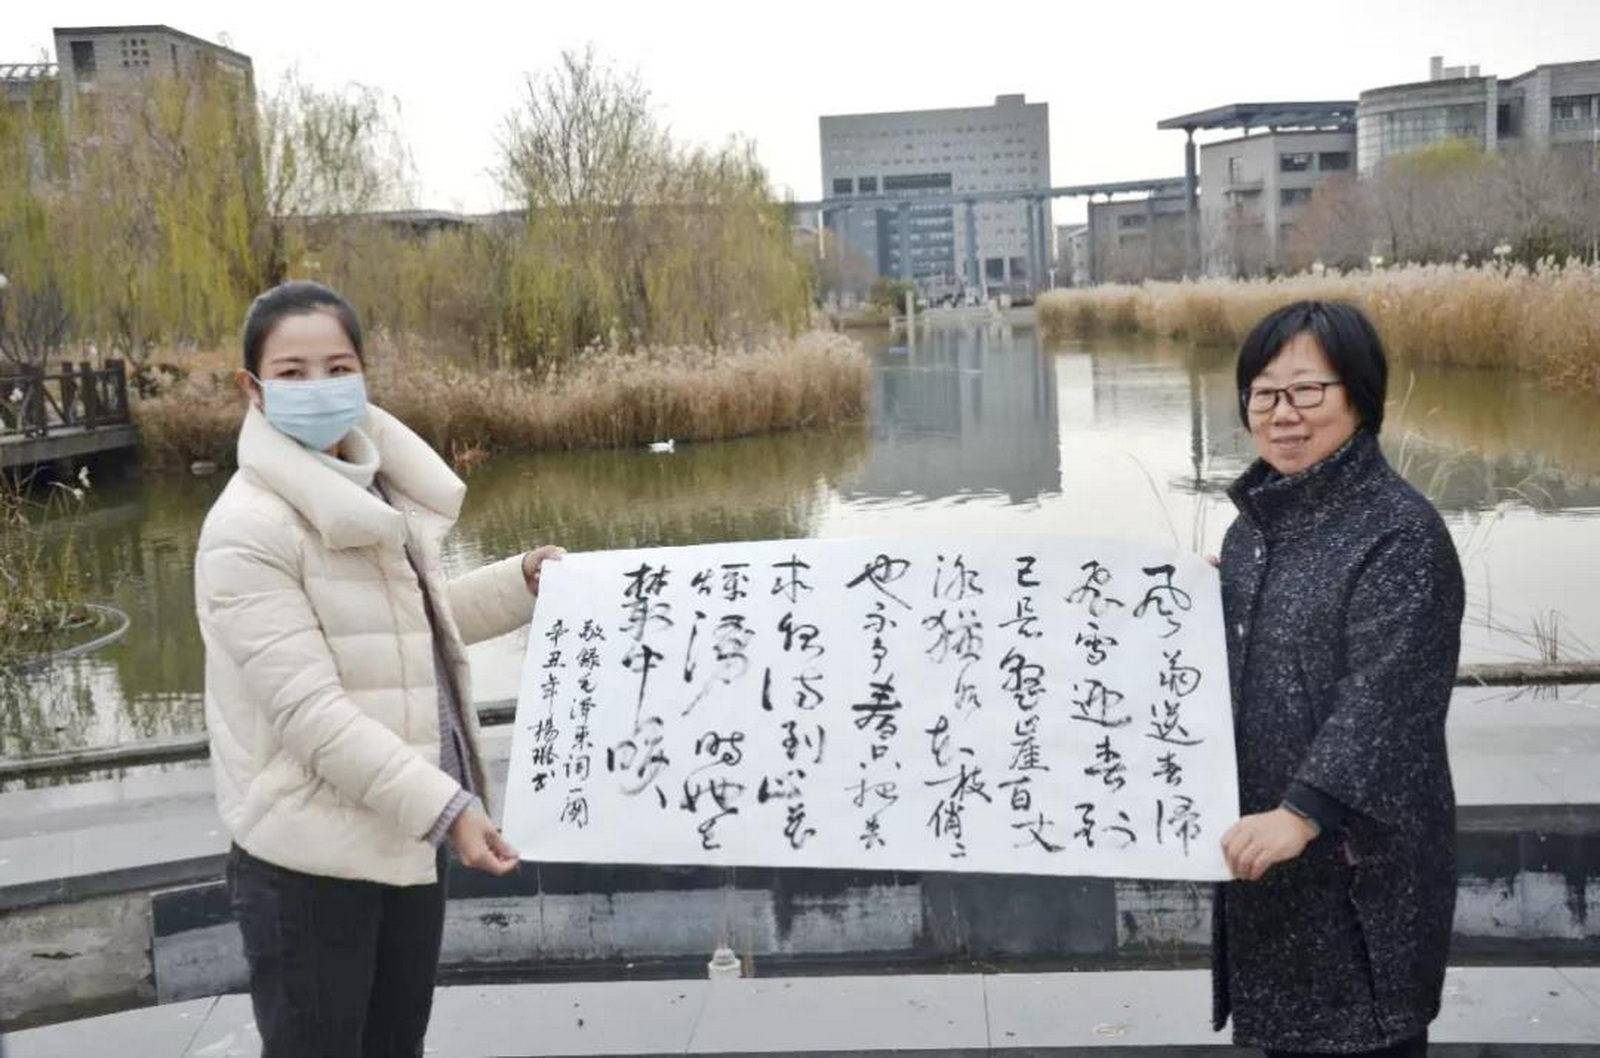 風雨送春歸
飛雪迎春到
已是懸崖百丈
冰猶有花枝俏〻
也不爭春只把春
來報待到山花
爛漫時她在
叢中咲
敬録毛澤東詞一闋
辛丑年楊書